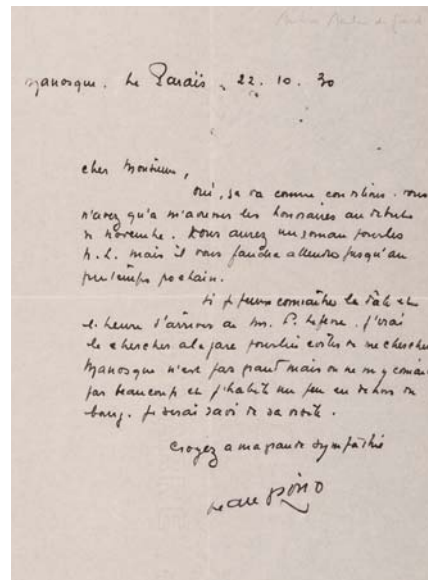 Manosque. Le Paraïs, 22.10.30
cher Monsieur,
Oui, ça va comme conditions. vous
n'avez qu'a m'avancer les honoraires au début
de novembre. Vous aurez un roman pour les
N.L. mais il vous faudra attendre jusqu'au
printemps prochain.
Si je peux connaître la date et
l'heure d'arrivée de M. F. Lefèvre. j'irai
le chercher a la gare pour lui éviter de me chercher
Manosque n'est pas grand mais on ne m'y connait
pas beaucoup et j'habite un peu en dehors du
bourg. je serai ravi de sa visite.
Croyez a ma grande sympathie
Jean Giono